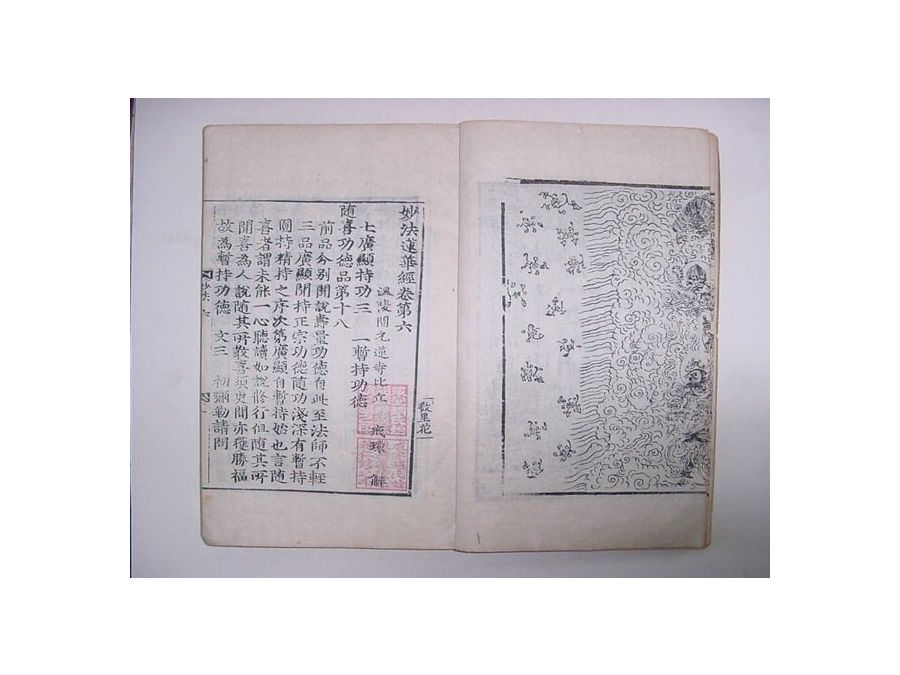 妙法蓮華經卷第六
溫陵開元蓮寺比丘 戒環 解
七廣顯持功三 一暫持功德
随喜功德品第十八
前品分別開說壽量功德自此至法師不輕
三品廣顯聞持正宗功德随功淺深有暫持
圓持精持之序次第廣顯自暫持始也言随
喜者謂未能一心聽讀如說修行但随其所
聞喜為人說随其所教喜須臾聞亦獲勝福
故為暫持功德 文三 初弥勒請問